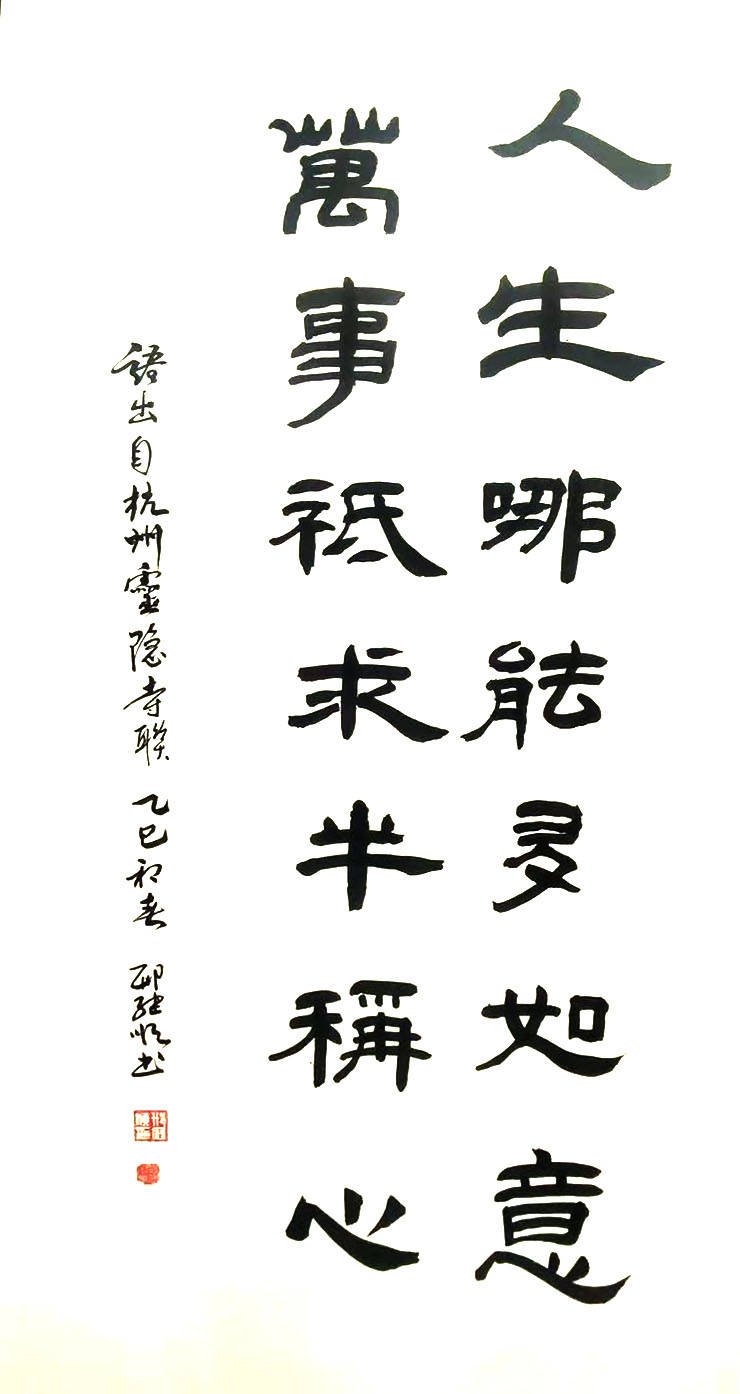 人生哪能多如意
萬事祗求半稱心
語出自杭州靈隐寺聯 乙巳初春 邢继顺书